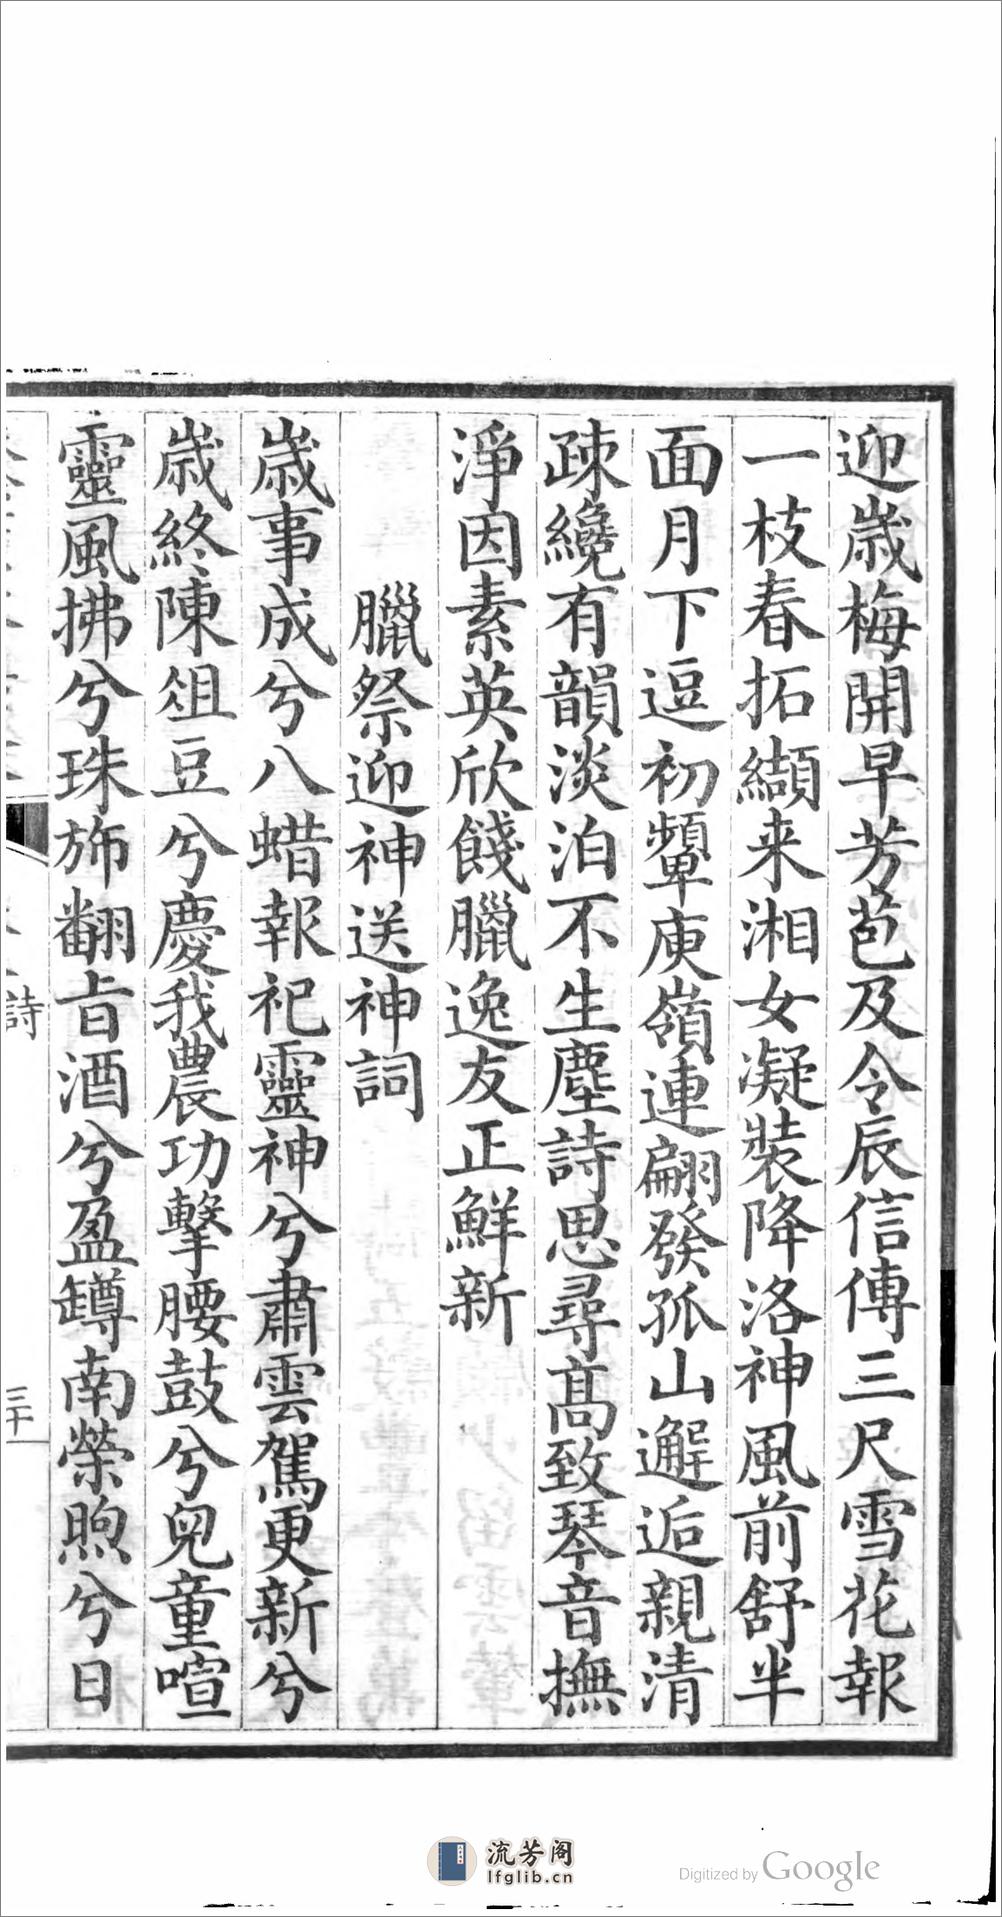 迎歲梅開早芳苞及令辰信傳三尺雪花報
一枝春拓纈来湘女凝裝降洛神風前舒半
面月下逗初顰庾嶺連翩發孤山邂逅親清
疎纔有韻淡泊不生塵詩思尋髙致琴音撫
淨因素英欣餞臘逸友正鮮新
臘祭迎神送神詞
歲事成兮八蜡報祀靈神兮肅雲駕更新兮
歲終陳俎豆兮慶我農功擊腰鼓兮兒童喧
靈風拂兮珠斾翻旨酒兮盈罇南榮煦兮日
詩
三十
流芳阁
lfglib.cn
Digitized by Google